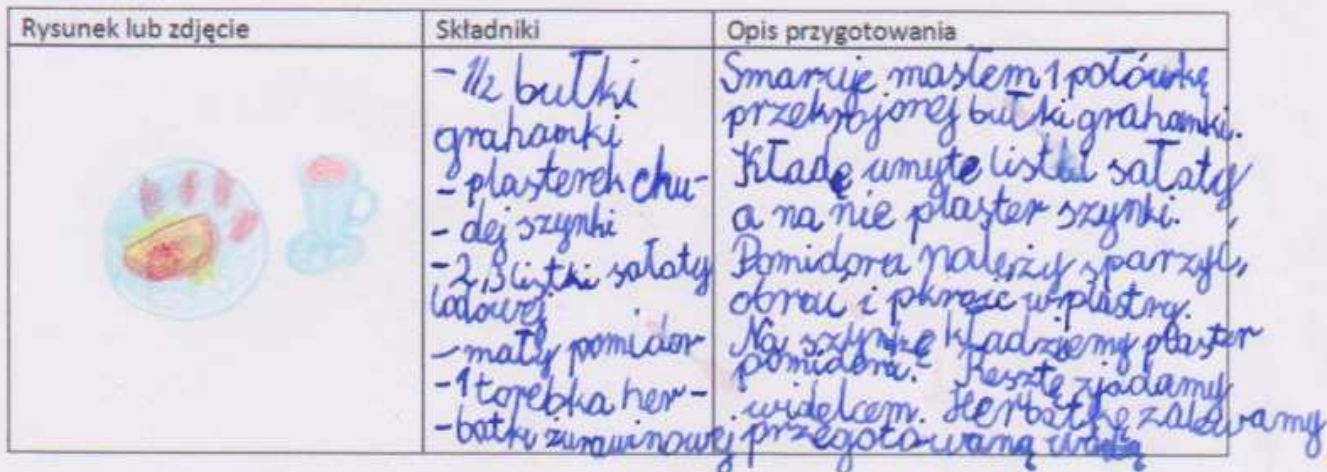 Rysunek lub zdjęcie
Składniki
- 1/2 bułki
grahamki
- plasterek chu-
- dej szynki
- 2,3 listki sałaty
lodowej
- mały pomidor
- 1 torebka her-
- batki żurawinowej
Opis przygotowania
Smaruje masłem 1 połówkę
przekrojonej bułki grahamki.
Kładę umyte listki sałaty
a na nie plaster szynki.
Pomidora należy sparzyć,
obrać i pkroić w plastry.
Na szynkę kładziemy plaster
pomidora. Resztę zjadamy
widelcem. Herbatkę zalewamy
przegotowaną wodą